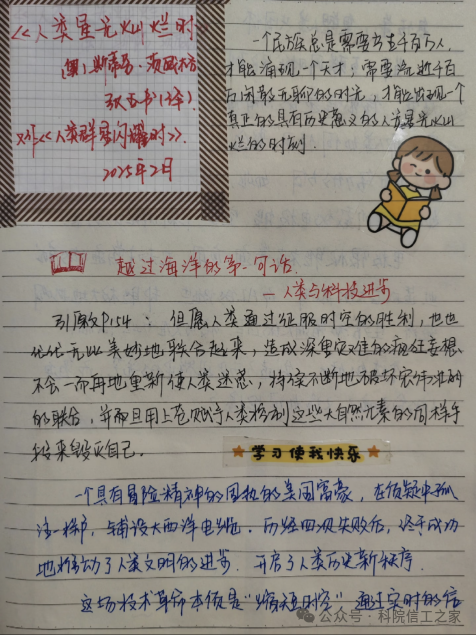 《人类星光灿烂时》
(奥)斯蒂芬·茨威格
张玉书(译)
又作《人类群星闪耀时》.
2025年2月
一个民族总是需要有千百万人,
才能涌现一个天才;需要流逝千百
万闲散无聊的时光,才能出现一个
真正的具有历史意义的人类星光
灿烂的时刻.
越过海洋的第一句话.
—人类与科技进步
引原文P154:但愿人类通过征服时空的胜利,也
永远无比美妙地联合起来,造成深重灾难的疯狂妄想
不会一而再地重新使人类迷惑,将会不断地破坏宏伟
的联合,并而且用上苍赋予人类控制这些大自然元素的同样手
段来毁灭自己.
学习使我快乐
一个具有冒险精神的固执的美国富豪,在质疑中孤
注一掷,铺设大西洋电缆.历经四次失败后,终于成功
地推动了人类文明的进步.开启了人类历史新秩序.
这场技术革命本质是"压缩时空"通过实时的信
公众号·科院信工之家